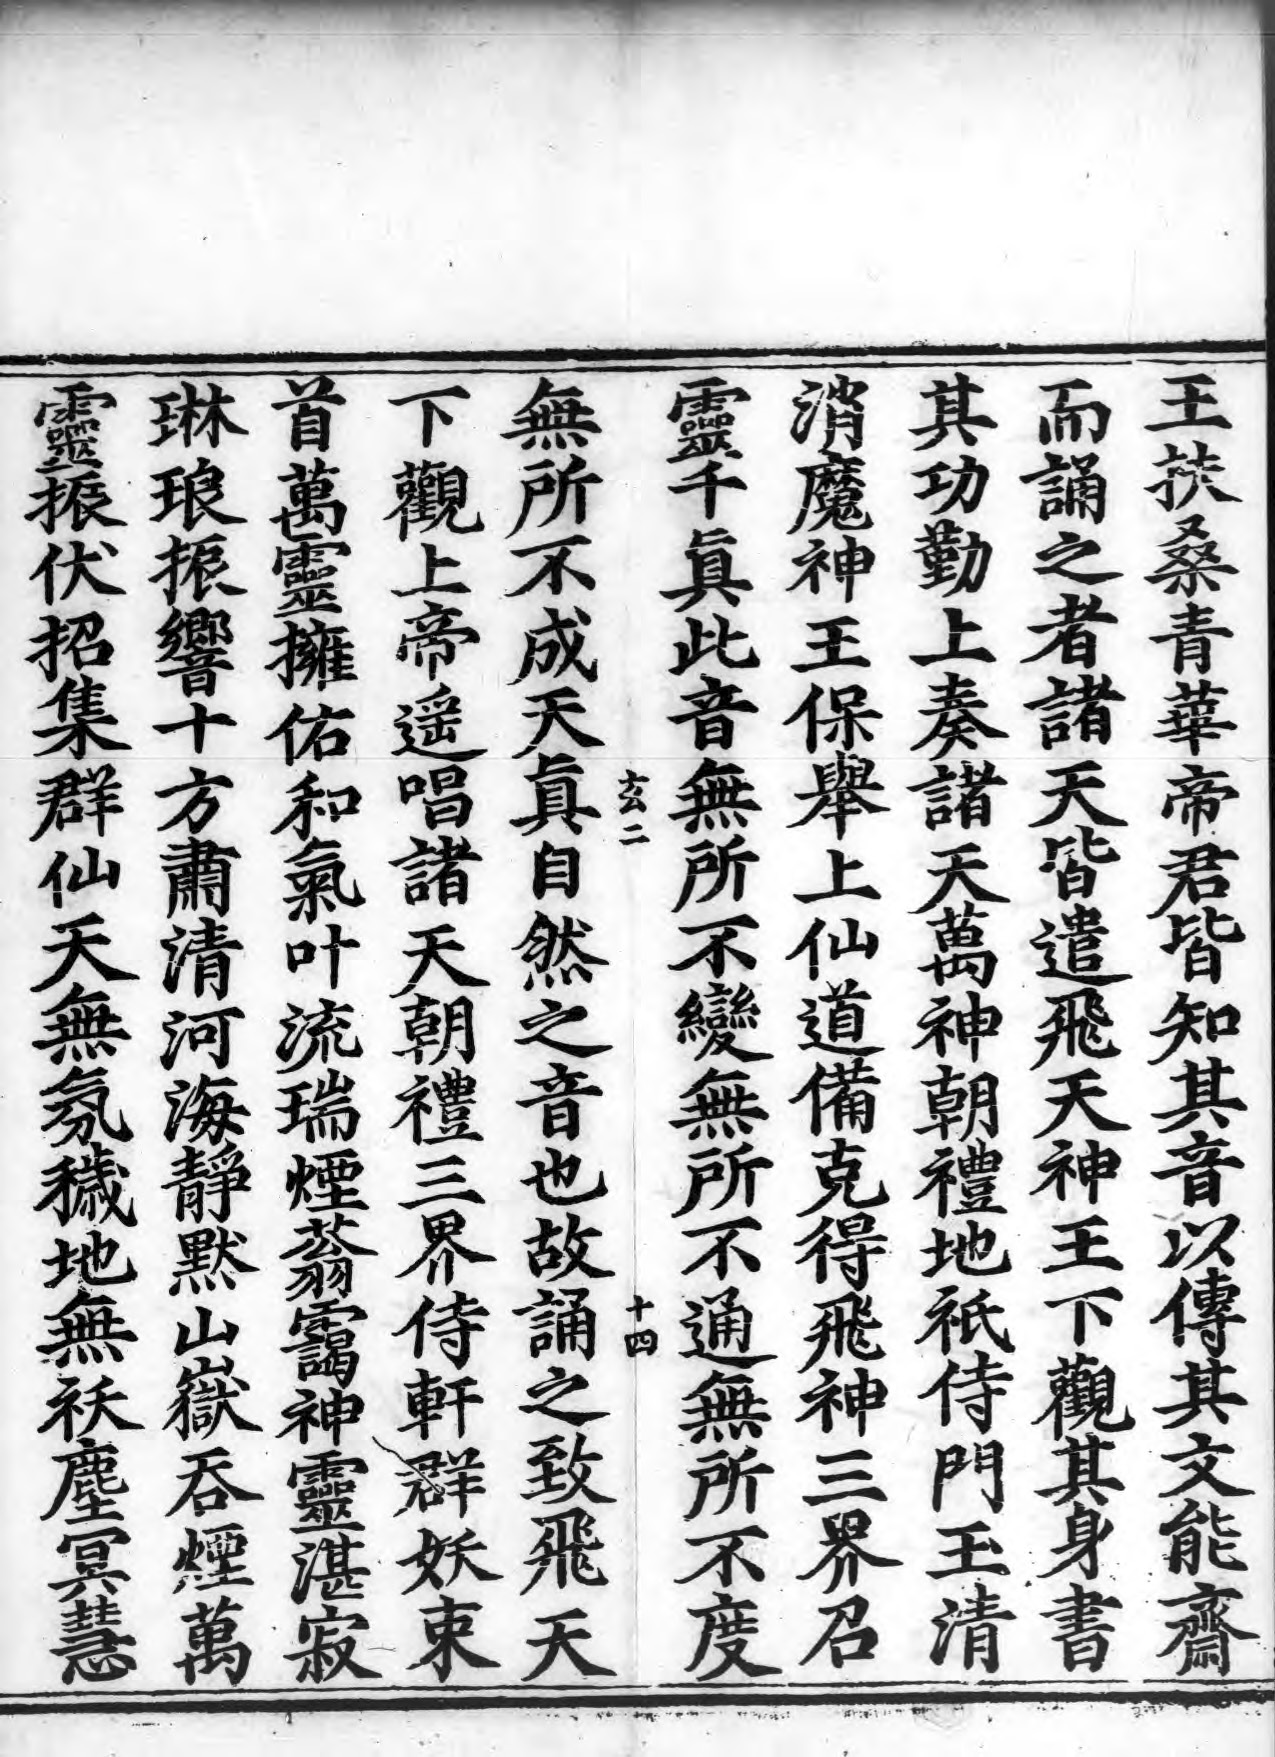 王扶桑青華帝君皆知其音以傳其文能齋
而誦之者諸天皆遣飛天神王下觀其身書
其功勤上奏諸天萬神朝禮地祇侍門玉清
消魔神王保舉上仙道備克得飛神三界召
靈千眞此音無所不變無所不通無所不度
玄二 十四
無所不成天眞自然之音也故誦之致飛天
下觀上帝遥唱諸天朝禮三界侍軒群妖束
首萬靈擁佑和氣叶流瑞煙蓊靄神靈湛寂
琳琅振響十方肅清河海靜默山嶽吞煙萬
靈振伏招集群仙天無氛穢地無祅塵冥慧